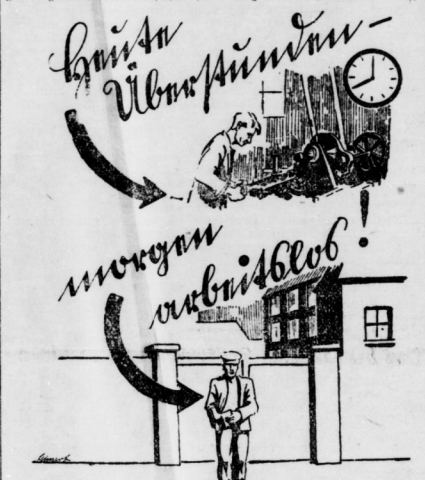 Heute
Überstunden –
morgen
arbeitslos!